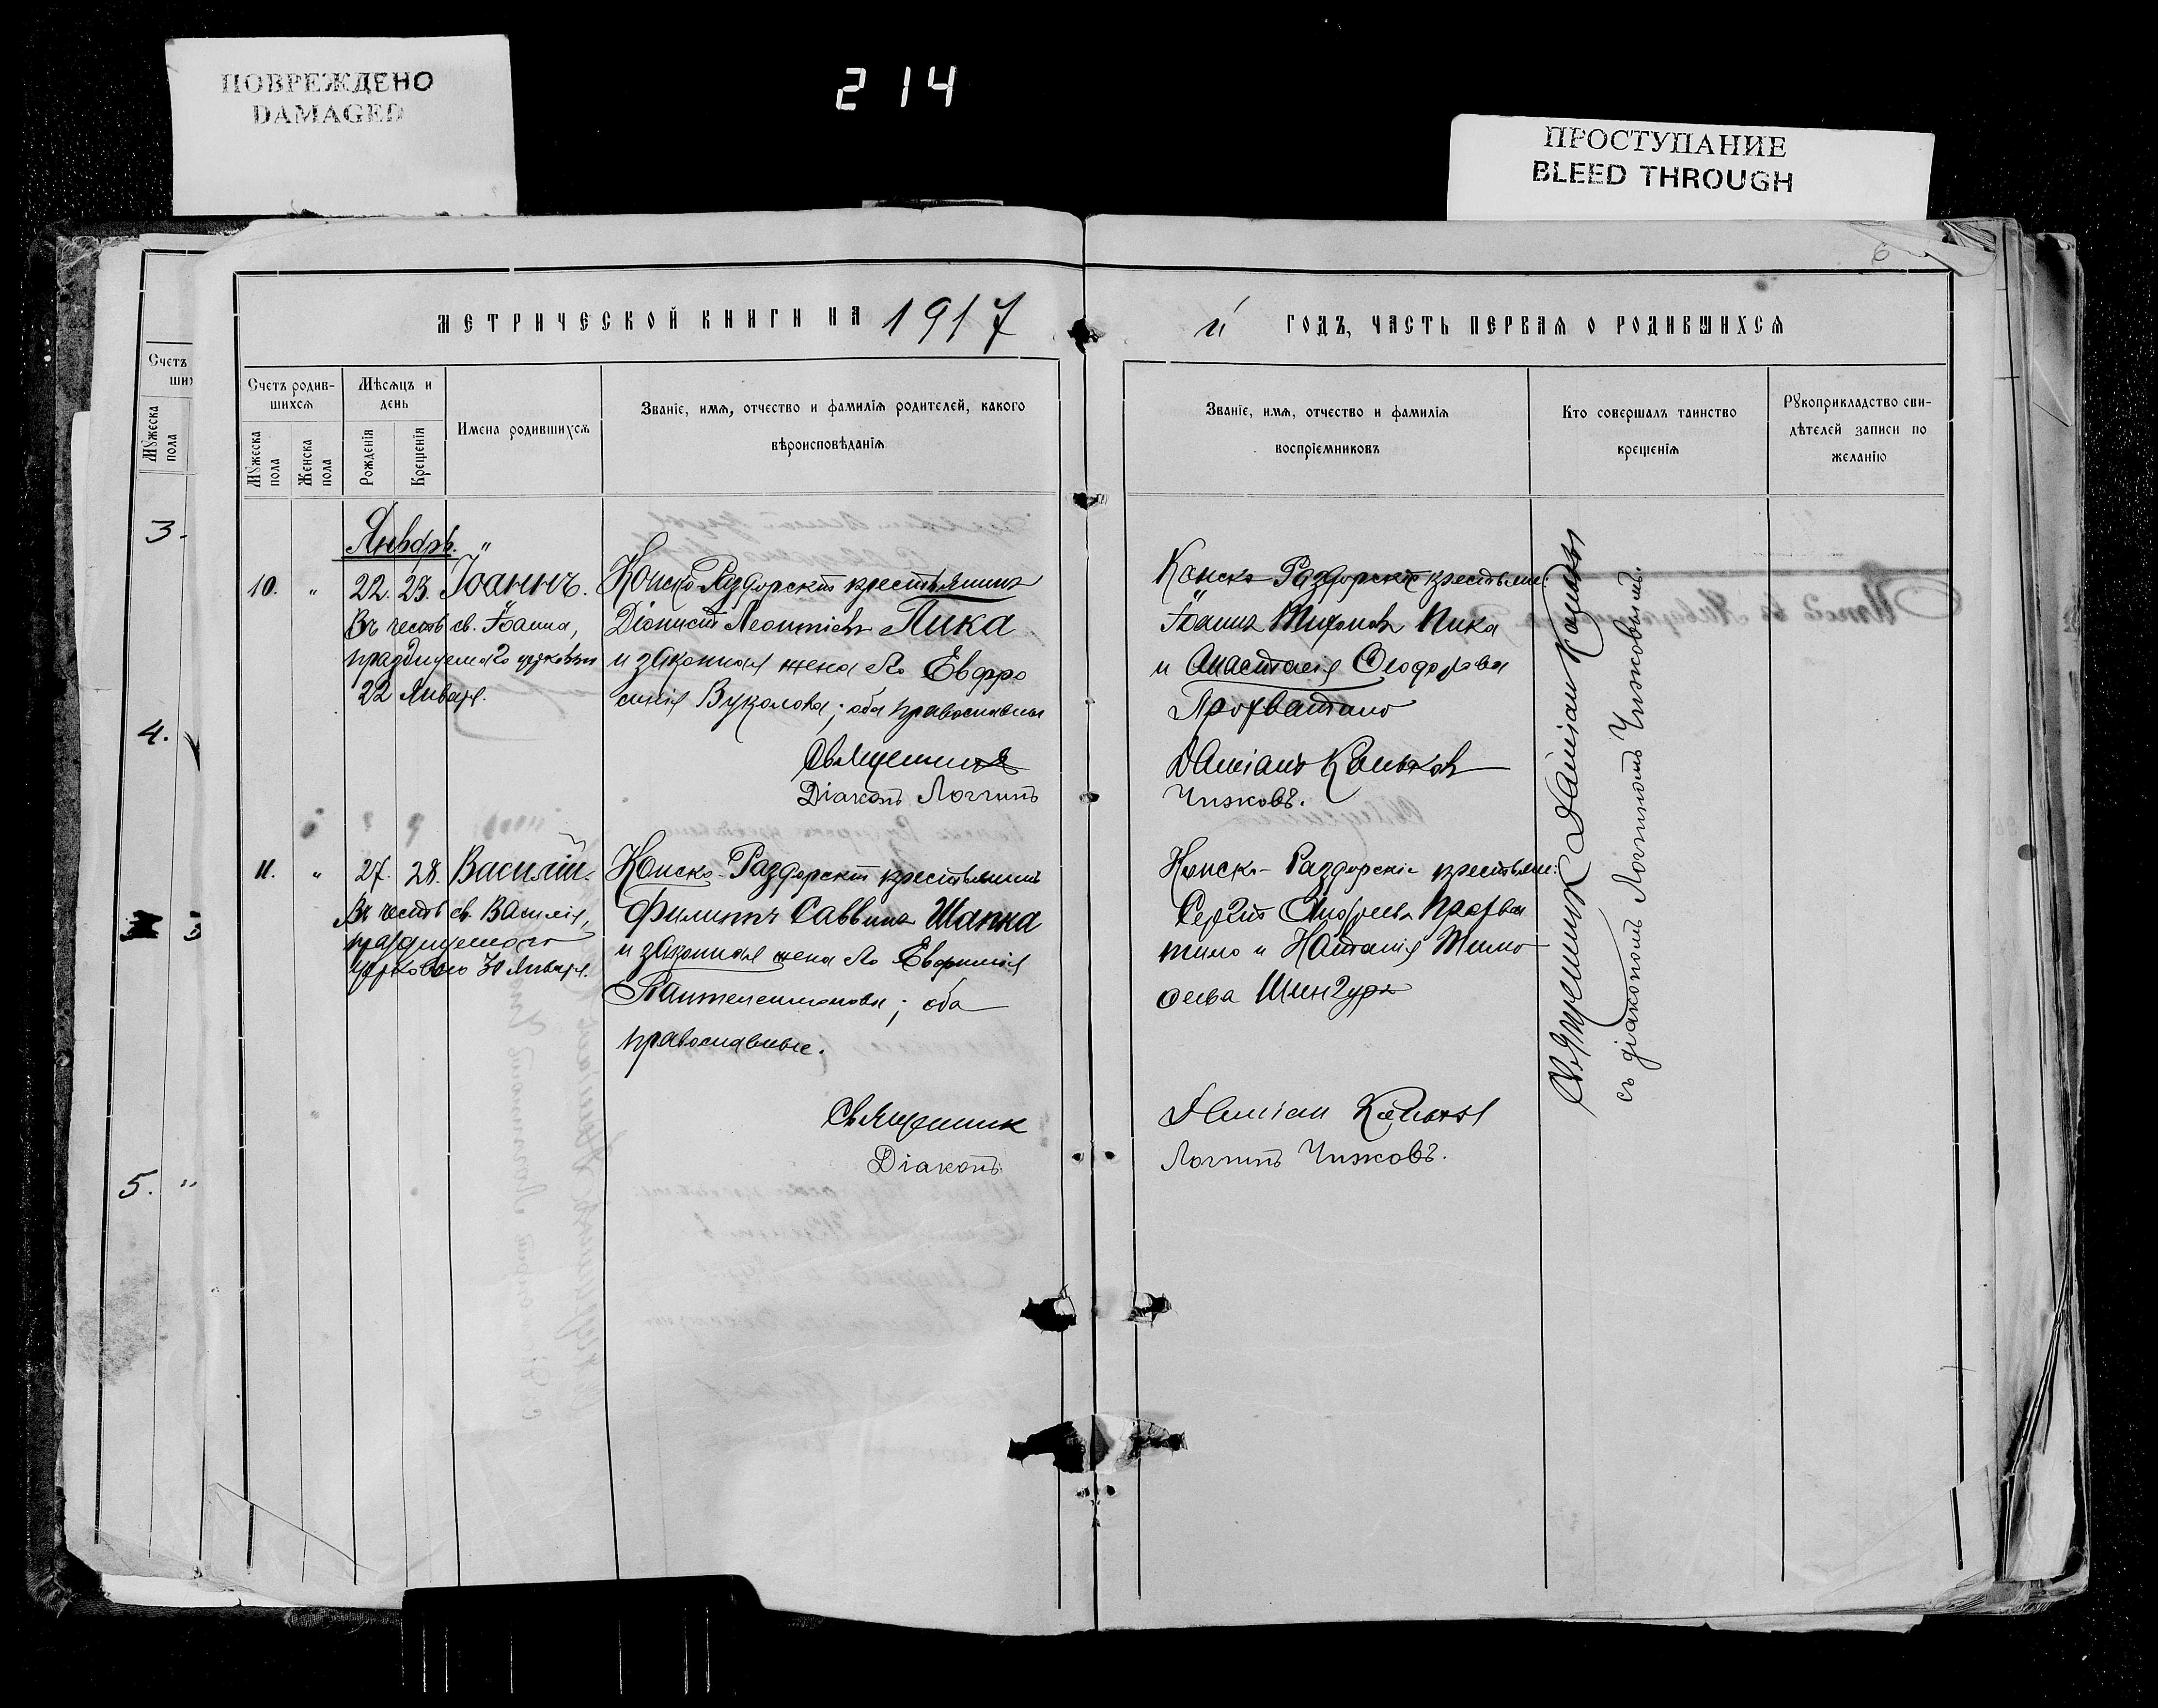 ПОВРЕЖДЕНО
DAMAGED
214
ПРОСТУПАНИЕ
BLEED THROUGH
6
МЕТРИЧЕСКОЙ КНИГИ НА 1917
й ГОДЪ, ЧАСТЬ ПЕРВАЯ О РОДИВШИХСЯ
Счетъ
ших
Мужеска пола
3.
4.
5. "
Счетъ родив-
шихся
Мужеска пола
Женска пола
Мѣсяцъ и
день
Рожденія
Крещенія
Имена родившихся
Званіе, имя, отчество и фамилія родителей, какого
вѣроисповѣданія
Званіе, имя, отчество и фамилія
воспріемниковъ
Кто совершалъ таинство
крещенія
Рукоприкладство сви-
дѣтелей записи по
желанію
Январь. "
10. " 22. 23. Іоаннъ.
Въ честь св. Іоанна,
празднуемаго церковью
22 Января.
Конско-Раздорскій крестьянинъ
Діонисій Леонтіевъ Пика
и законная жена его Евфро
синія Вуколова; оба православные
Священникъ
Діаконъ Логгинъ
Конско-Раздорскіе крестьяне:
Іоаннъ Пика
и Анастасія Ѳеодорова
Прохватило
Даміанъ
Чижовъ.
11. " 27. 28. Василій.
Въ честь св. Василія,
празднуемаго
церковью 30 Января.
Конско-Раздорскій крестьянинъ
Филиппъ Саввинъ Шапка
и законная жена его Евфимія
Пантелеимонова; оба
православные.
Священник
Діаконъ
Конско-Раздорскіе крестьяне:
Сергій Андреевъ Прохва
тило и Наталія Тимо
ѳеева
Даміан
Логгинъ Чижовъ.
Священник Даміан
съ діакономъ Логгиномъ Чижовымъ.